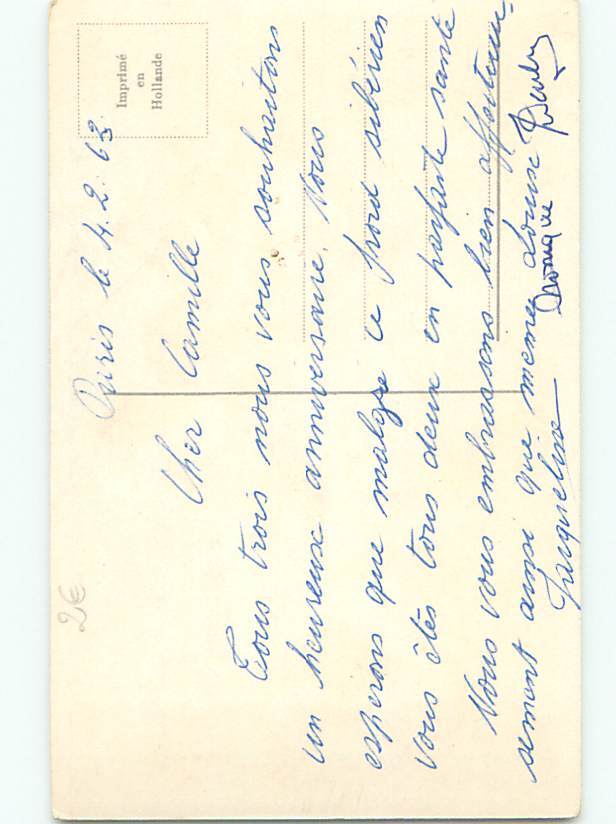 Imprimé
en
Hollande
Paris le 4.2.63
Cher Camille
Tous trois nous vous souhaitons
un heureuse anniversaire. Nous
esperons que malgre ce froid sibérien
vous êtes tous deux en parfaite santé
Nous vous embrassons bien affectueu-
sement ainsi que meme Louise
Jacqueline
2€